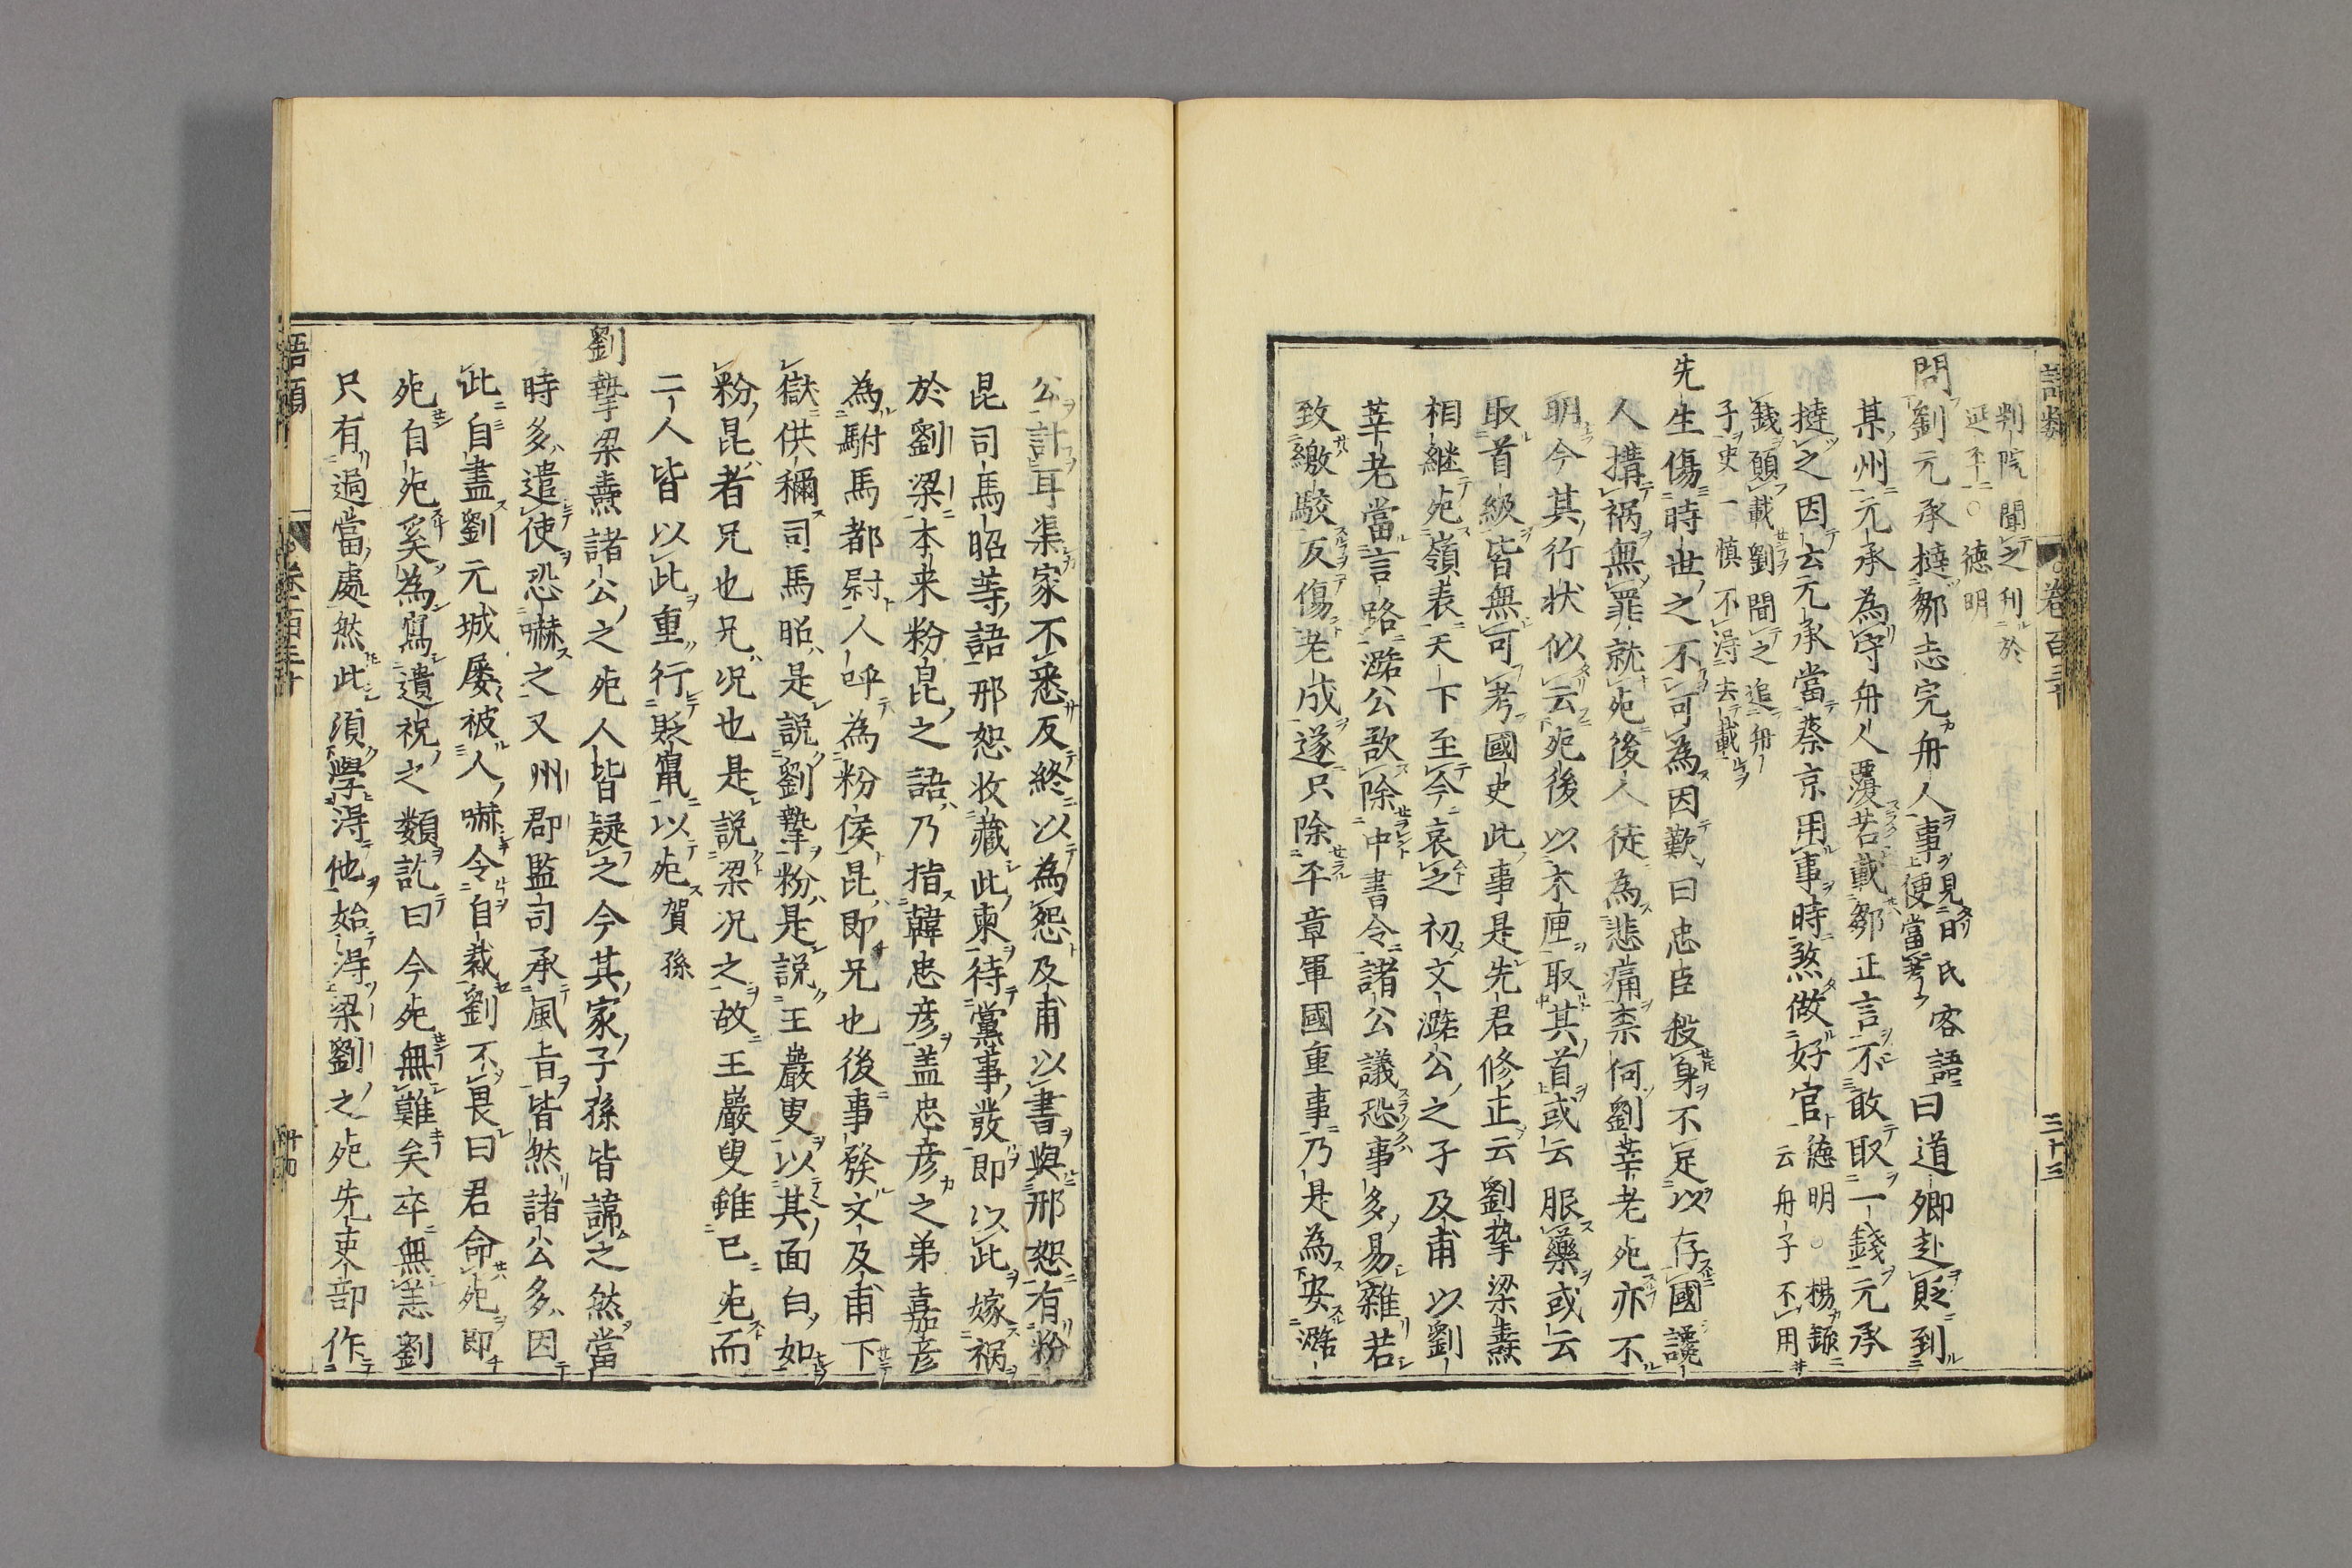 語類
卷百三十
三十三
判院聞之利於
延平○德明
問劉元承撻鄒志完舟人事見晁氏客語曰道卿赴貶到
便當考
某州元承為守舟人覆若載鄒正言不敢取一錢元承
撻之因云元承當蔡京用事時煞做好官德明○楊錄
一云舟子不用
錢願載劉聞之追舟
子史一慎不得去載
先生傷時世之不可為因歎曰忠臣殺身不足以存國讒
人搆禍無罪就死後人徒為悲痛柰何劉莘老死亦不
明今其行状似云死後以木匣取其首或云服藥或云
取首級皆無可考國史此事是先君修正云劉摯梁燾
相継死嶺表天下至今哀之初文潞公之子及甫以劉
莘老當言路潞公歌除中書令諸公議恐事多易雜若
致繳駮反傷老成遂只除平章軍國重事乃是為安潞
公計耳渠家不悉反終以為怨及甫以書與邢恕有粉
昆司馬昭等語邢恕收藏此柬待黨事發即以此嫁禍
於劉梁本来粉昆之語乃指韓忠彦盖忠彦之弟嘉彦
為駙馬都尉人呼為粉侯昆即兄也後事發文及甫下
獄供稱司馬昭是説劉摯粉是説王巖叟以其面白如
粉昆者兄也兄況也是説梁况之故王巖叟雖已死而
二人皆以此重行貶竄以死賀孫
劉摯梁燾諸公之死人皆疑之今其家子孫皆諱之然當
時多遣使恐嚇之又州郡監司承風㫖皆然諸公多因
此自盡劉元城屡被人嚇令自裁劉不畏曰君命死即
死自死奚為寫遺祝之類訖曰今死無難矣卒無恙劉
只有過當處然此須學得他始得梁劉之死先吏部作
語類
卷百三十